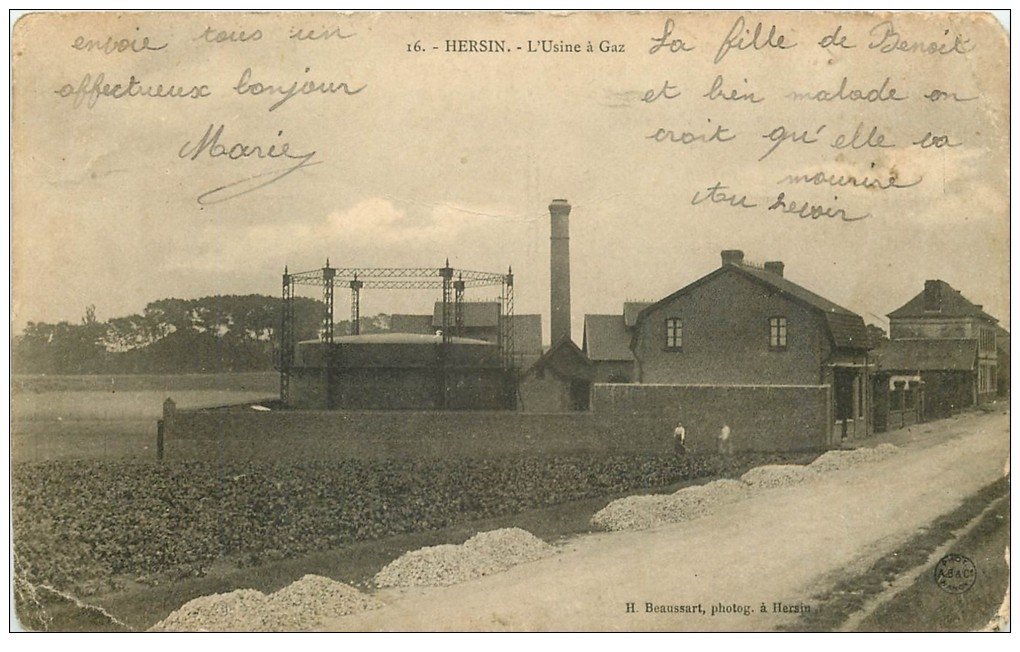 envoie tous un
affectueux bonjour
Marie
16. - HERSIN. - L'Usine à Gaz
La fille de Benoit
et bien malade on
croit qu'elle va
mourire
Au revoir
A.B & Cie
NANCY
H. Beaussart, photog. à Hersin